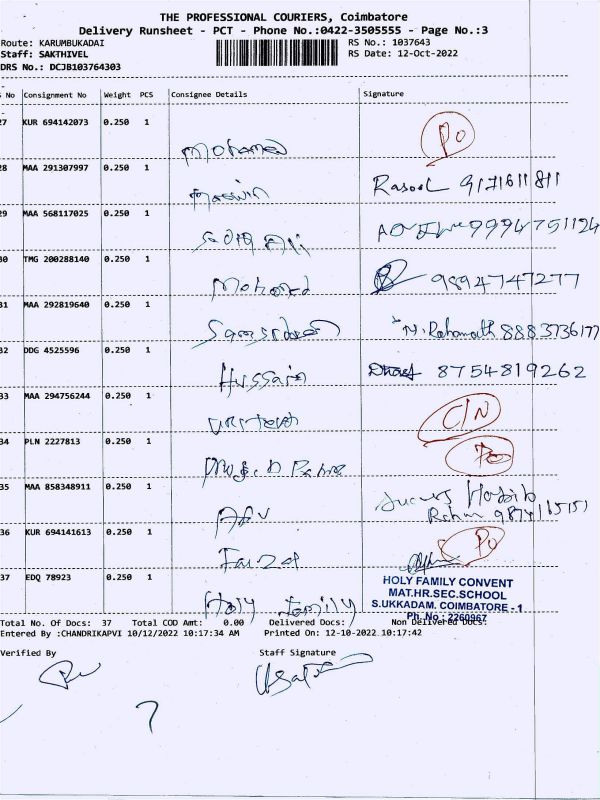 THE PROFESSIONAL COURIERS, Coimbatore
Delivery Runsheet - PCT - Phone No.:0422-3505555 - Page No.:3
Route: KARUMBUKADAI
RS No.: 1037643
Staff: SAKTHIVEL
RS Date: 12-Oct-2022
DRS No.: DCJB103764303
S No Consignment No Weight PCS Consignee Details Signature
27 KUR 694142073 0.250 1
Mohamed
PO
28 MAA 291307997 0.250 1
Rasool 9171611811
29 MAA 568117025 0.250 1
Ali
9994751124
30 TMG 200288140 0.250 1
Mohamed
9894747277
31 MAA 292819640 0.250 1
N. Rahamath 8883736177
32 DDG 4525596 0.250 1
Hussain
8754819262
33 MAA 294756244 0.250 1
C/N
34 PLN 2227813 0.250 1
PO
35 MAA 858348911 0.250 1
Habib
36 KUR 694141613 0.250 1
PO
37 EDQ 78923 0.250 1
Holy Family
HOLY FAMILY CONVENT
MAT.HR.SEC.SCHOOL
S.UKKADAM. COIMBATORE - 1
Ph.No : 2260967
Total No. Of Docs: 37 Total COD Amt: 0.00 Delivered Docs: Non Delivered Docs:
Entered By :CHANDRIKAPVI 10/12/2022 10:17:34 AM Printed On: 12-10-2022 10:17:42
Verified By Staff Signature